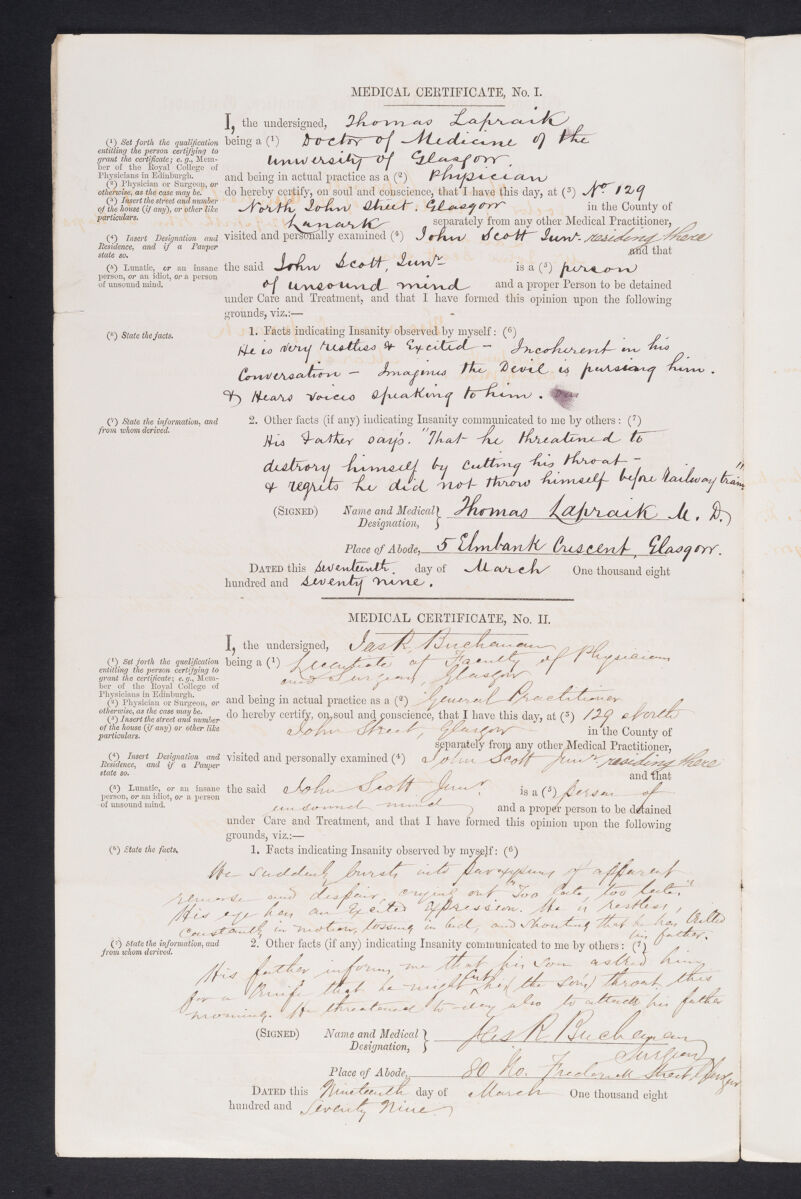 MEDICAL CERTIFICATE, No. I.
I, the undersigned, Thomas Lapraik
being a (1) Doctor of Medicine of the
University of Glasgow
and being in actual practice as a (2) Physician
do hereby certify, on soul and conscience, that I have this day, at (3) No. 129
North John Street. Glasgow in the County of
Lanark separately from any other Medical Practitioner,
visited and personally examined (4) John Scott Junr. residing there
and that
the said John Scott, Junr is a (5) person
of unsound mind and a proper Person to be detained
under Care and Treatment, and that I have formed this opinion upon the following
grounds, viz.:—
(1) Set forth the qualification
entitling the person certifying to
grant the certificate; e. g., Mem-
ber of the Royal College of
Physicians in Edinburgh.
(2) Physician or Surgeon, or
otherwise, as the case may be.
(3) Insert the street and number
of the house (if any), or other like
particulars.
(4) Insert Designation and
Residence, and if a Pauper
state so.
(5) Lunatic, or an insane
person, or an idiot, or a person
of unsound mind.
(6) State the facts.
1. Facts indicating Insanity observed by myself: (6)
He is very restless & Excited – Incoherent in his
Conversation – Imagines the Devil is pursuing him.
& Hears voices speaking to him.
(7) State the information, and
from whom derived.
2. Other facts (if any) indicating Insanity communicated to me by others: (7)
His Father says. "That he threatened to
distrory himself by cutting his throat –
& regrets he did not throw himself before Railway train"
(SIGNED) Name and Medical Designation, } Thomas Lapraik M. D.
Place of Abode, 5 Elmbank Crescent, Glasgow.
DATED this Seventeenth. day of March One thousand eight
hundred and Seventy nine.
MEDICAL CERTIFICATE, No. II.
I, the undersigned, Jas R. Buchanan
being a (1) Licentiate of Faculty of Physicians
and Surgeons, Glasgow
and being in actual practice as a (2) General Practitioner
do hereby certify, on soul and conscience, that I have this day, at (3) 129 North
John Street, Glasgow in the County of
separately from any other Medical Practitioner,
visited and personally examined (4) John Scott Junr residing there
and that
the said John Scott Junr. is a (5) person of
unsound mind and a proper person to be detained
under Care and Treatment, and that I have formed this opinion upon the following
grounds, viz.:—
(1) Set forth the qualification
entitling the person certifying to
grant the certificate; e. g., Mem-
ber of the Royal College of
Physicians in Edinburgh.
(2) Physician or Surgeon, or
otherwise, as the case may be.
(3) Insert the street and number
of the house (if any) or other like
particulars.
(4) Insert Designation and
Residence, and if a Pauper
state so.
(5) Lunatic, or an insane
person, or an idiot, or a person
of unsound mind.
(6) State the facts.
1. Facts indicating Insanity observed by myself: (6)
He suddenly bursts into paroxysms of apparent
remorse and despair, crying out "Too late, too late."
His eye has an excited expression. He is restless,
constantly in motion, tossing in bed, and shouting that he has killed
his father.
(7) State the information, and
from whom derived.
2. Other facts (if any) indicating Insanity communicated to me by others: (7)
His father informs me that his son asked him
for a knife that he might cut his (the son's) throat this
morning. He threatened to-day also to attack his father
(SIGNED) Name and Medical Designation, } Jas R Buchanan
Surgeon
Place of Abode, 80 No. Frederick Street, Glasgow
DATED this Nineteenth day of March One thousand eight
hundred and Seventy Nine